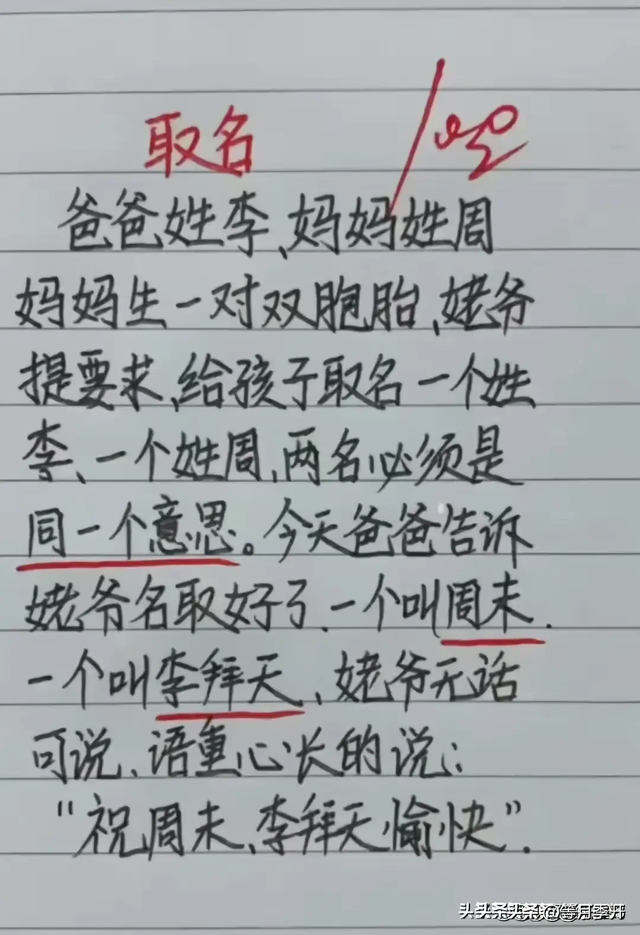 取名
爸爸姓李、妈妈姓周
妈妈生一对双胞胎、姥爷
提要求、给孩子取名一个姓
李、一个姓周,两名必须是
同一个意思。今天爸爸告诉
姥爷名取好了、一个叫周末.
一个叫李拜天、姥爷无话
可说、语重心长的说:
“祝周末、李拜天愉快”.